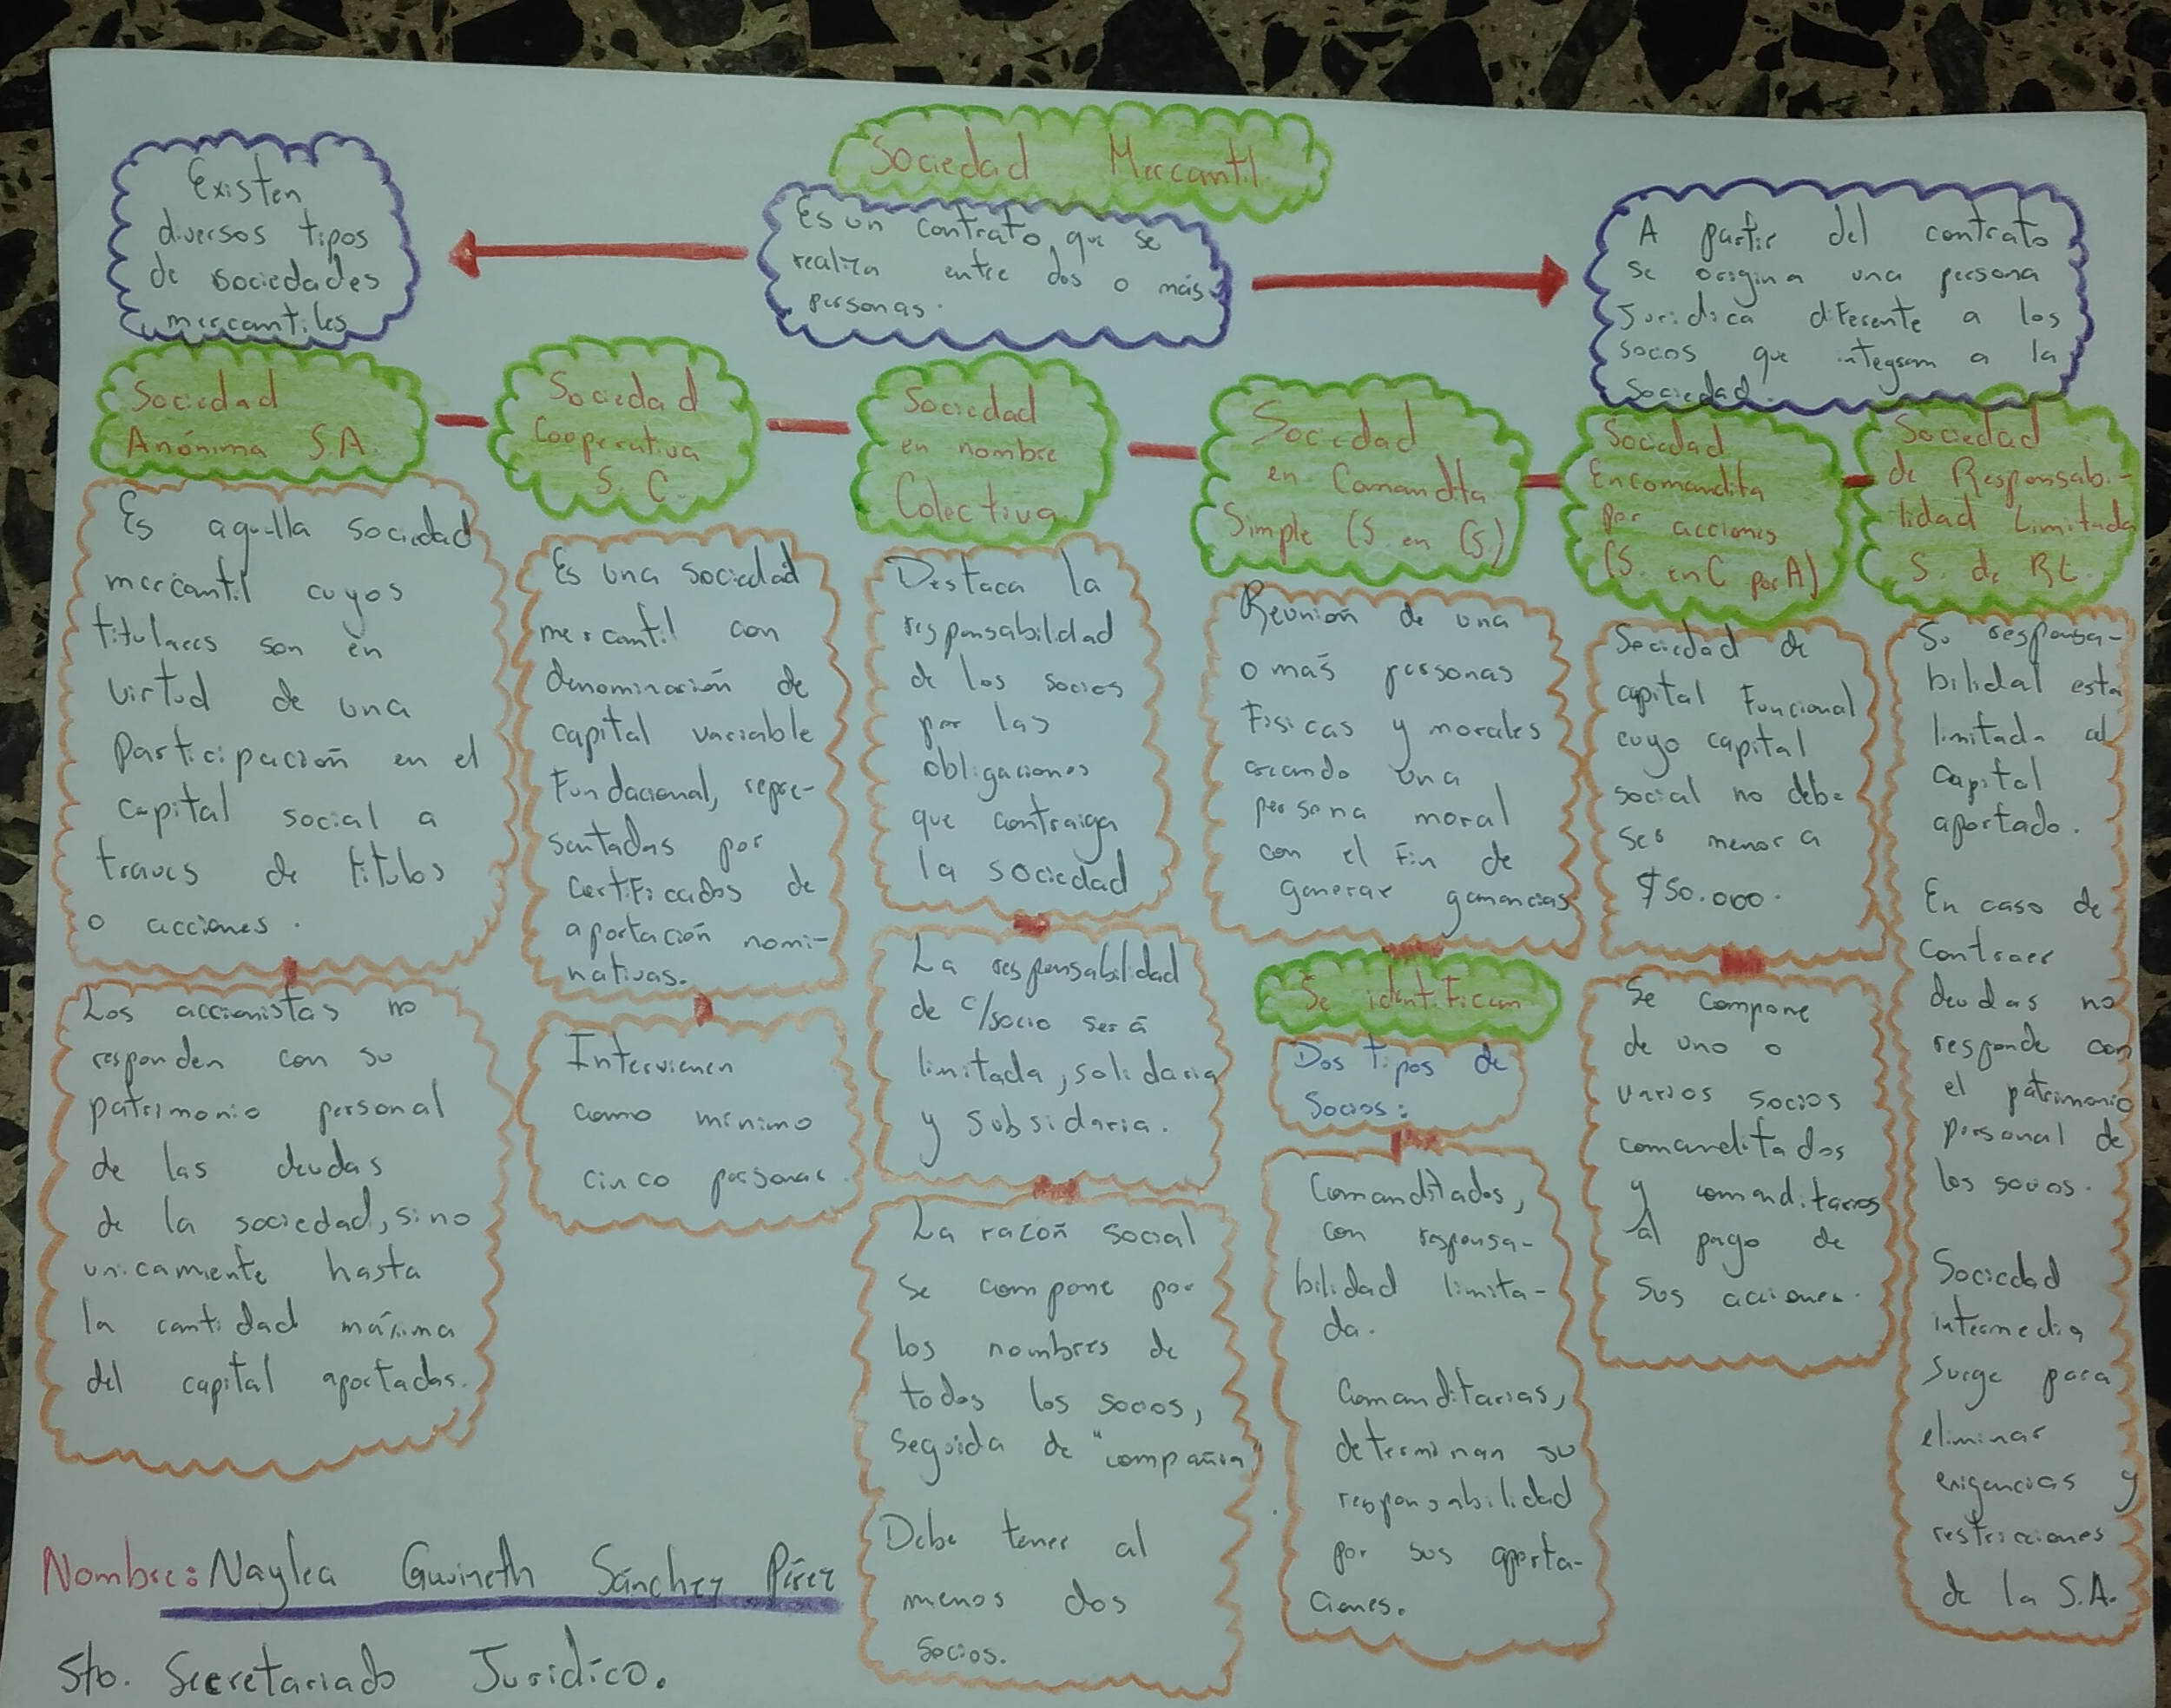 Sociedad Mercantil
Es un contrato, que se
realiza entre dos o más
personas.
Existen
diversos tipos
de sociedades
mercantiles
A partir del contrato
se origina una persona
Juridica diferente a los
socos que integran a la
sociedad.
Sociedad
Anónima S.A.
Es aquella sociedad
mercantil cuyos
titulares son en
virtud de una
participación en el
capital social a
traves de titulos
o acciones.
Los accionistas no
responden con su
patrimonio personal
de las deudas
de la sociedad, sino
unicamente hasta
la cantidad máxima
del capital aportadas.
Sociedad
Cooperativa
S. C.
Es una sociedad
mercantil con
denominación de
capital variable
Fundacional, repre-
sentadas por
certificados de
aportación nomi-
nativas.
Intervienen
como mínimo
cinco personas.
Sociedad
en nombre
Colectivo
Destaca la
responsabilidad
de los socios
por las
obligaciones
que contraiga
la sociedad
La responsabilidad
de c/socio será
limitada, solidaria
y subsidaria.
La razón social
se compone por
los nombres de
todos los socios,
seguida de "compañia"
Debe tener al
menos dos
socios.
Sociedad
en Comandita
Simple (S. en C.S.)
Reunión de una
o más personas
Fisicas y morales
creando una
persona moral
con el Fin de
generar ganancias
Se identifican
Dos tipos de
Socios:
Comanditados,
con responsa-
bilidad limita-
da.
Comanditarias,
determinan su
responsabilidad
por sus aporta-
ciones.
Sociedad
Encomandita
por acciones
(S. en C por A)
Sociedad de
capital Funcional
cuyo capital
social no debe
ser menor a
$50.000.
Se compone
de uno o
varios socios
comanditados
y comanditarios
al pago de
sus acciones.
Sociedad
de Responsabi-
lidad Limitada
S. de RL.
Su responsa-
bilidal esta
limitada al
Capital
aportado.
En caso de
contraer
deudas no
responde con
el patrimonio
personal de
los socios.
Sociedad
intermedia
surge para
eliminar
exigencias y
restricciones
de la S.A.
Nombre: Naylea Gwineth Sánchez Pérez
5to. Secretariado Jurídico.